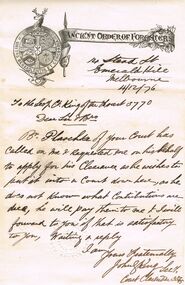 ANCIENT ORDER OF FORESTERS
Emerald Hill
Melbourne
4/12/76
Dear Sir & Bro
Bro. of your Court has
called on me & requested me on his behalf
to apply for his Clearance as he wishes to
put it into a Court over here, as he
does not know what Contributions are
due, he will pay them to me & I will
forward to you if that is satisfactory
to you, Waiting a reply
I am
Yours Fraternally
John
Secy
Court